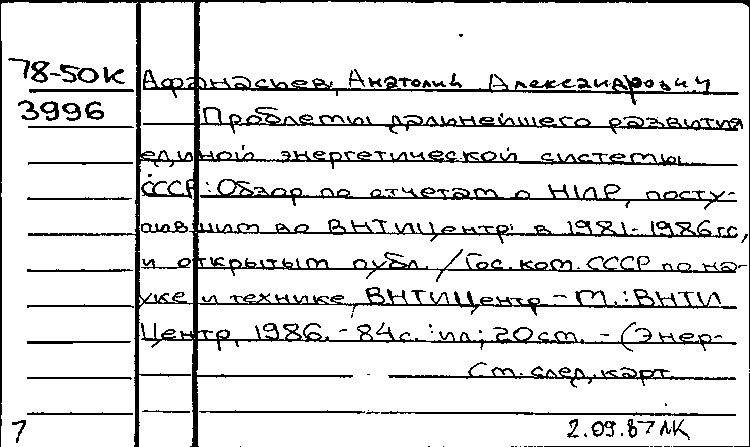 78-50К Афанасьев, Анатолий Александрович
3996 Проблемы дальнейшего развития
единой энергетической системы
СССР: Обзор по отчетам о НИР, посту-
пившим во ВНТИЦентр в 1981-1986гг,
и открытым публ. / Гос. ком. СССР по на-
уке и технике, ВНТИЦентр - М.: ВНТИ
Центр, 1986. - 84с. : ил; 20см. - (Энер-
См. след. карт.
7 2.09.87 ЛК